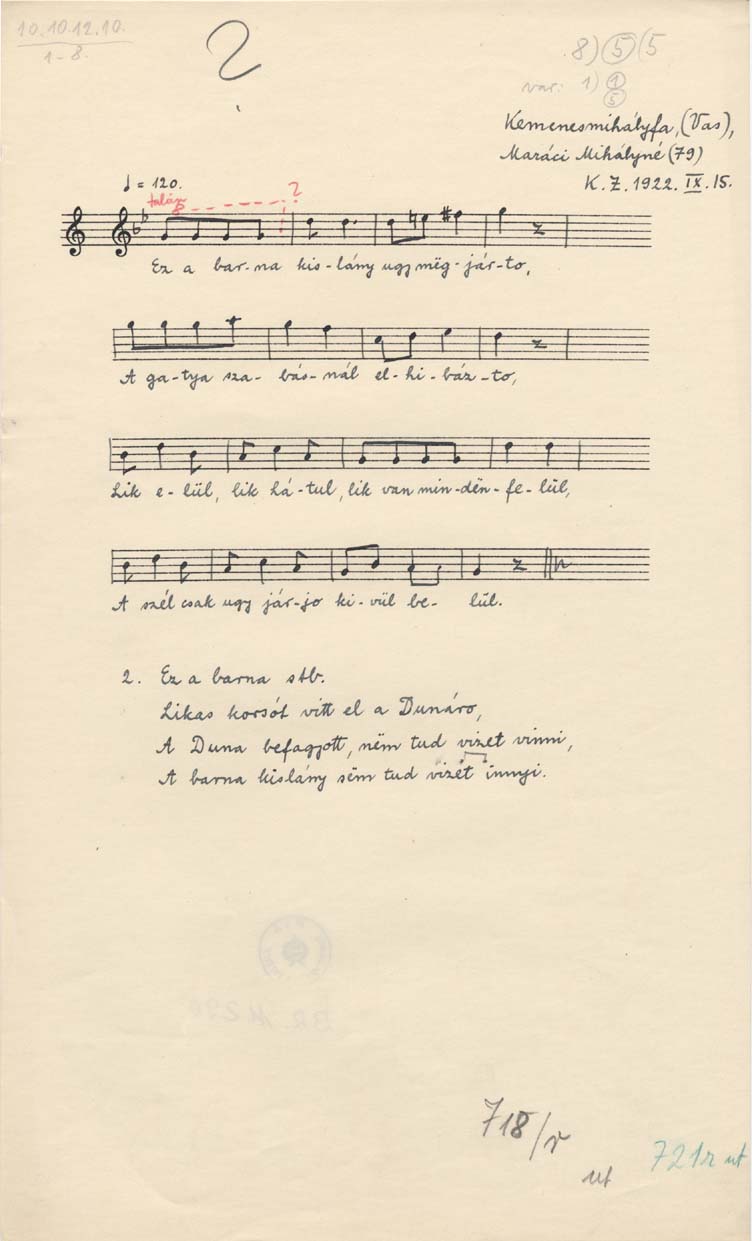 10.10.12.10.
1-8.
2
8) 5 (5
var: 1) 1
5
Kemenesmihályfa, (Vas),
Maráci Mihályné (79)
K. Z. 1922. IX. 15.
♩ = 120.
talán 8 ?
Ez a bar-na kis-lány ugy mëg-jár-to,
A ga-tya sza-bás-nál el-hi-báz-to,
Lik e-lül, lik há-tul, lik van min-dën-fe-lül,
A szél csak ugy jár-jo ki-vül be-lül.
2. Ez a barna stb.
Likas korsót vitt el a Dunáro,
A Duna befagyott, nëm tud vizet vinni,
A barna kislány sëm tud vizet innyi.
718/v
ut
721r ut